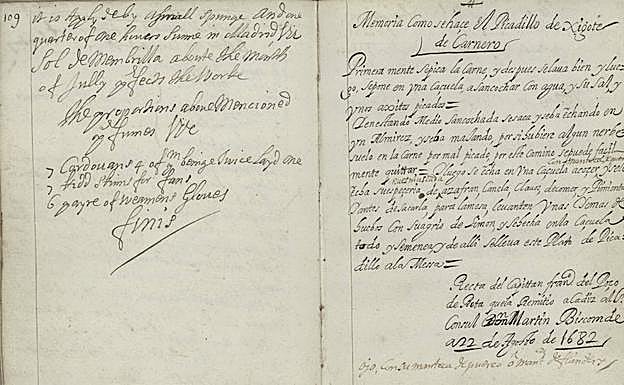 109 it is Apply'd by a small Spunge And one
quarter of one hower Sume in Madrid
Sol de Membrilla aboute the Month
of July the Worke
the proportions above Mencioned
7 Cordovans 4 of being twice Layd one
7 Kidd Skinns for fans
6 payre of weamons Gloves
finis
Memoria Como se hace El Picadillo de Xigote
de Carnero
Primera mente se pica la Carne, y despues se laua bien y lue
go, se pone en vna Caçuela a sancochar con agua, y su Sal y
vnos axitos picados =
Y enestando Medio Sancochada se saca y se ba echando en
vn Almirez, y se ba maxando, por si hubiere algun nerbo
suelo en la carne por mal picado, por este camino se puede facil
mente quittar = Y luego se echa en vna Caçuela a cocer, y se le
echa su especeria de azafran Canela, Clauos, de comer y Pimienta
Y antes de sacarla, para la mesa, leuanten Vnas Yemas de
huebos con su agrio de limon, y se hecha en la Caçuela
todo, y se menea, y de alli se lleua este Plato de Pica
dillo a la Messa =
Receta del Capittan Franco del Pozo
de Rota que la Remitio a Cadiz al
Consul Don Martin Biscomde
a 22 de Agosto de 1682
ojo, Con su manteca de puerco o mana de flandes